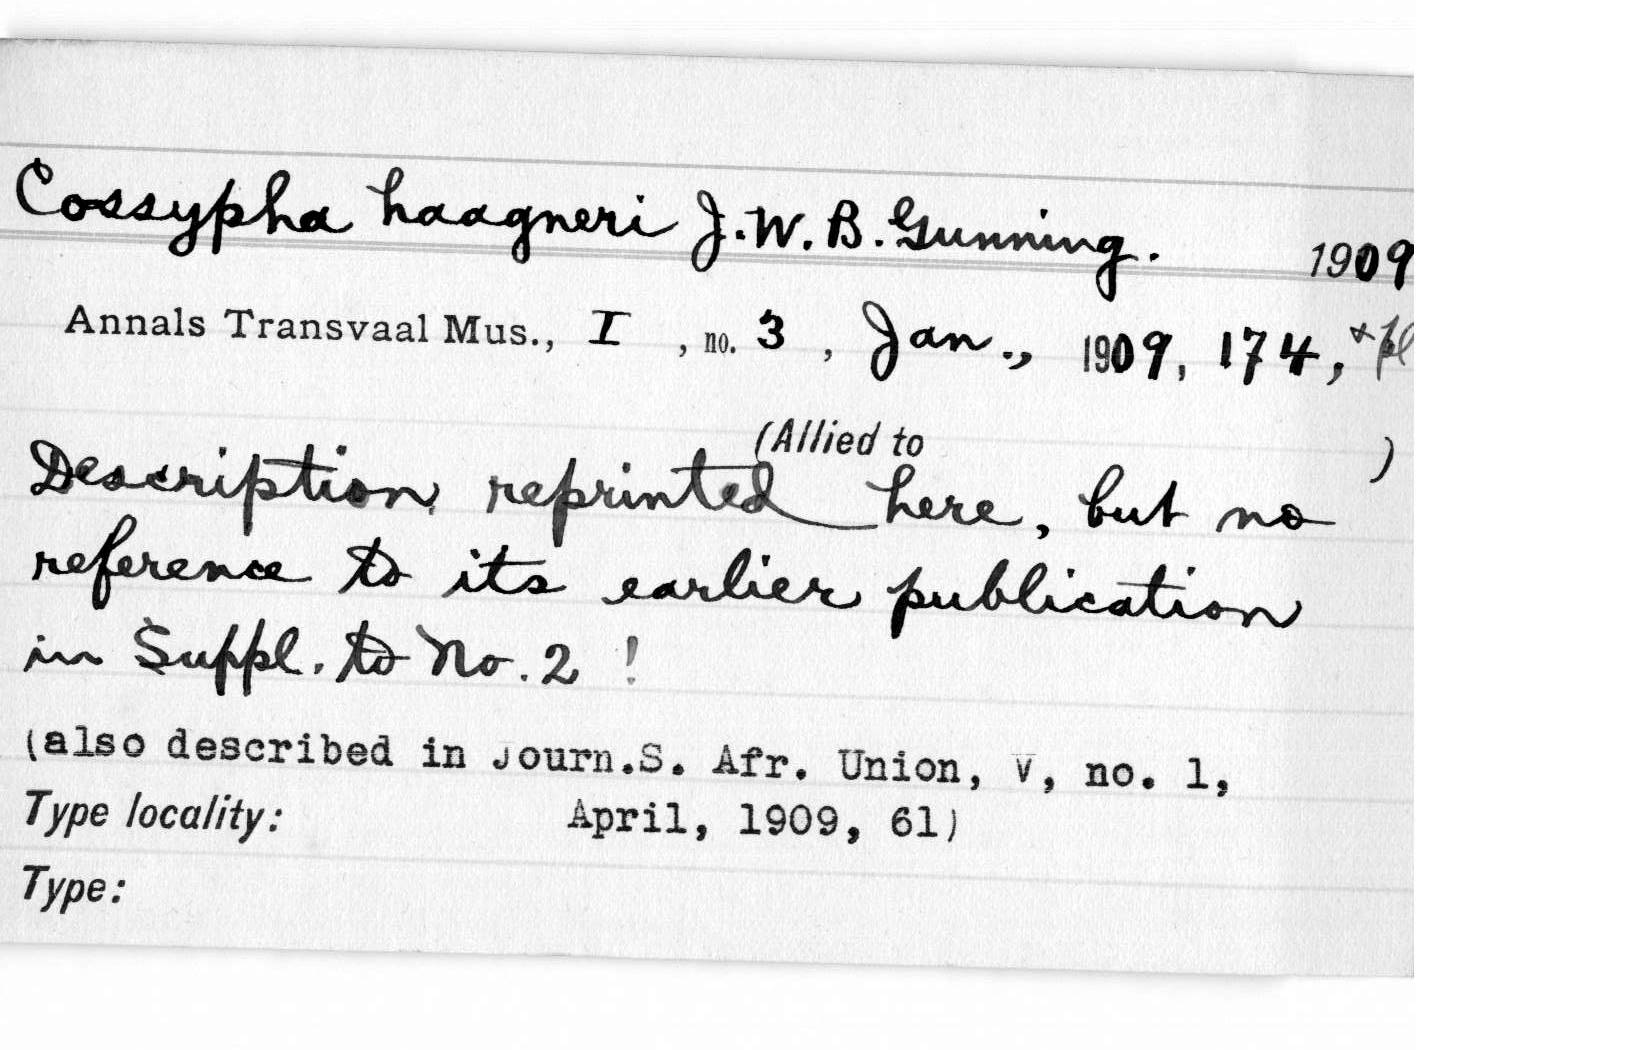 Cossypha haagneri J.W.B. Gunning. 1909
Annals Transvaal Mus., I, no. 3, Jan., 1909, 174, + pl
(Allied to )
Description reprinted here, but no
reference to its earlier publication
in Suppl. to No. 2 !
(also described in Journ.S. Afr. Union, V, no. 1,
Type locality: April, 1909, 61)
Type: